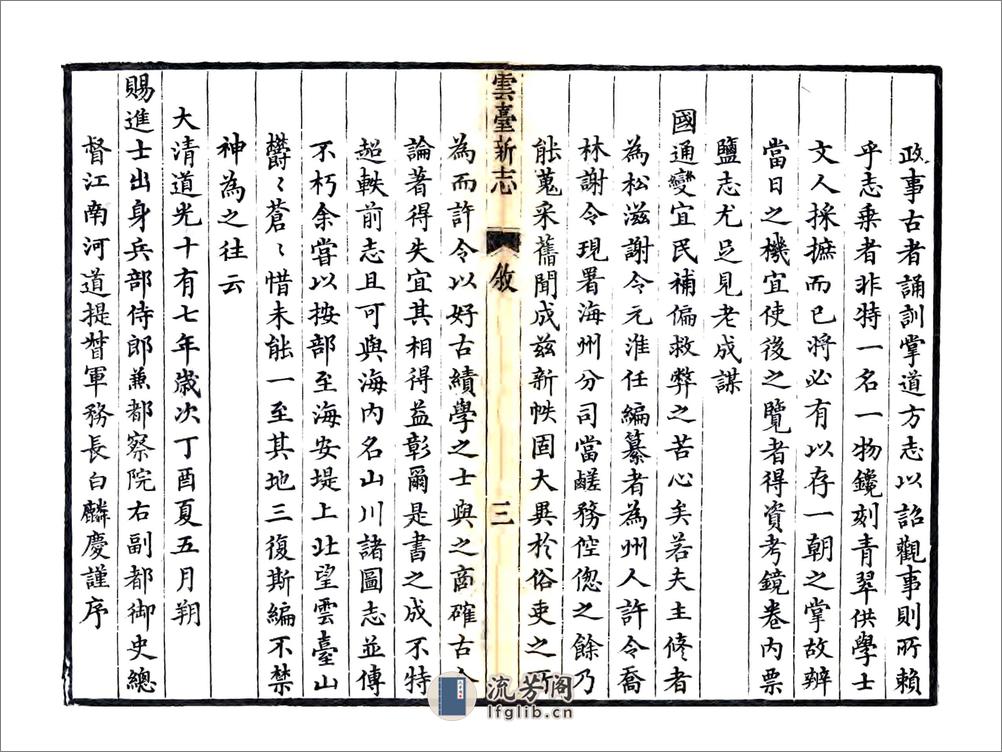 政事古者誦訓掌道方志以詔觀事則所賴
乎志乘者非特一名一物鑱刻青翠供學士
文人採摭而已將必有以存一朝之掌故辨
當日之機宜使後之覽者得資考鏡卷內票
鹽志尤足見老成謀
國通變宜民補偏救弊之苦心矣若夫主修者
為松滋謝令元淮任編纂者為州人許令喬
林謝令現署海州分司當鹺務倥偬之餘乃
能蒐采舊聞成茲新帙固大異於俗吏之所
雲臺新志
敘
三
為而許令以好古績學之士與之商確古今
論著得失宜其相得益彰爾是書之成不特
超軼前志且可與海內名山川諸圖志並傳
不朽余嘗以按部至海安堤上北望雲臺山
欝〻蒼〻惜未能一至其地三復斯編不禁
神為之往云
大清道光十有七年歲次丁酉夏五月朔
賜進士出身兵部侍郎兼都察院右副都御史總
督江南河道提督軍務長白麟慶謹序
流芳阁
lfglib.cn